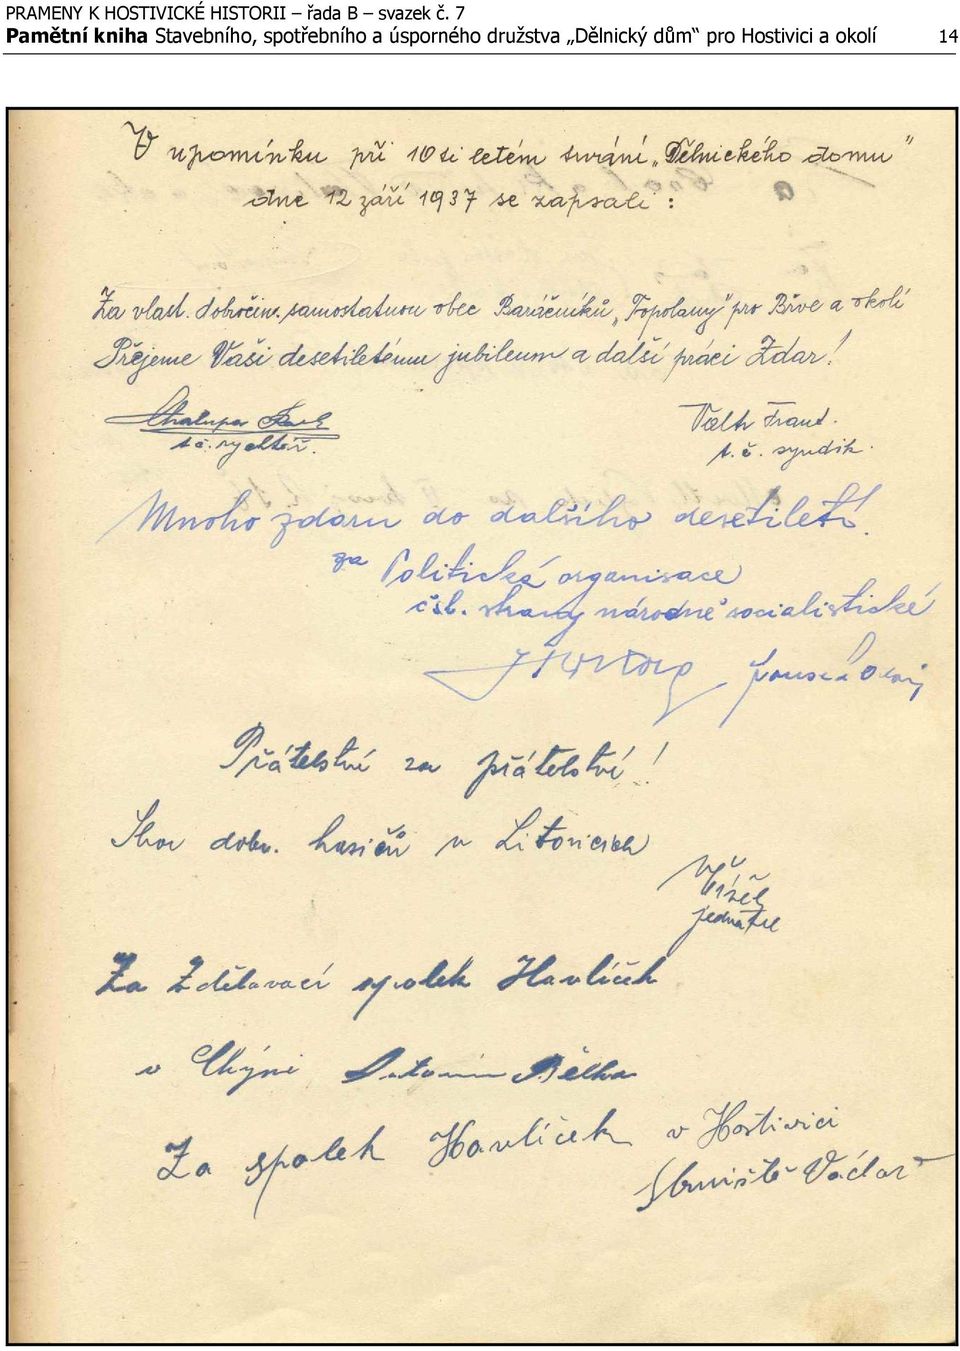 PRAMENY K HOSTIVICKÉ HISTORII – řada B – svazek č. 7
Pamětní kniha Stavebního, spotřebního a úsporného družstva „Dělnický dům“ pro Hostivici a okolí 14
V upomínku při 10ti letém trvání „Dělnického domu"
dne 12 září 1937 se zapsali :
Za vlast. dobročin. samostatnou obec Baráčníků „Topolany" pro Břve a okolí
Přejeme Vaší desetiletému jubileum a další práci Zdar!
Chalupa
t. č. rychtář.
Frant.
t. č. syndik.
Mnoho zdaru do dalšího desetiletí.
za Politická organisace
čsl. strany národně socialistické
Přátelství za přátelství!
Sbor dobr. hasičů v Litovicích
jednatel
Za Vzdělavací spolek Havlíček
v Chýni Antonín Bělka
Za spolek Havlíček v Hostivici
Václav